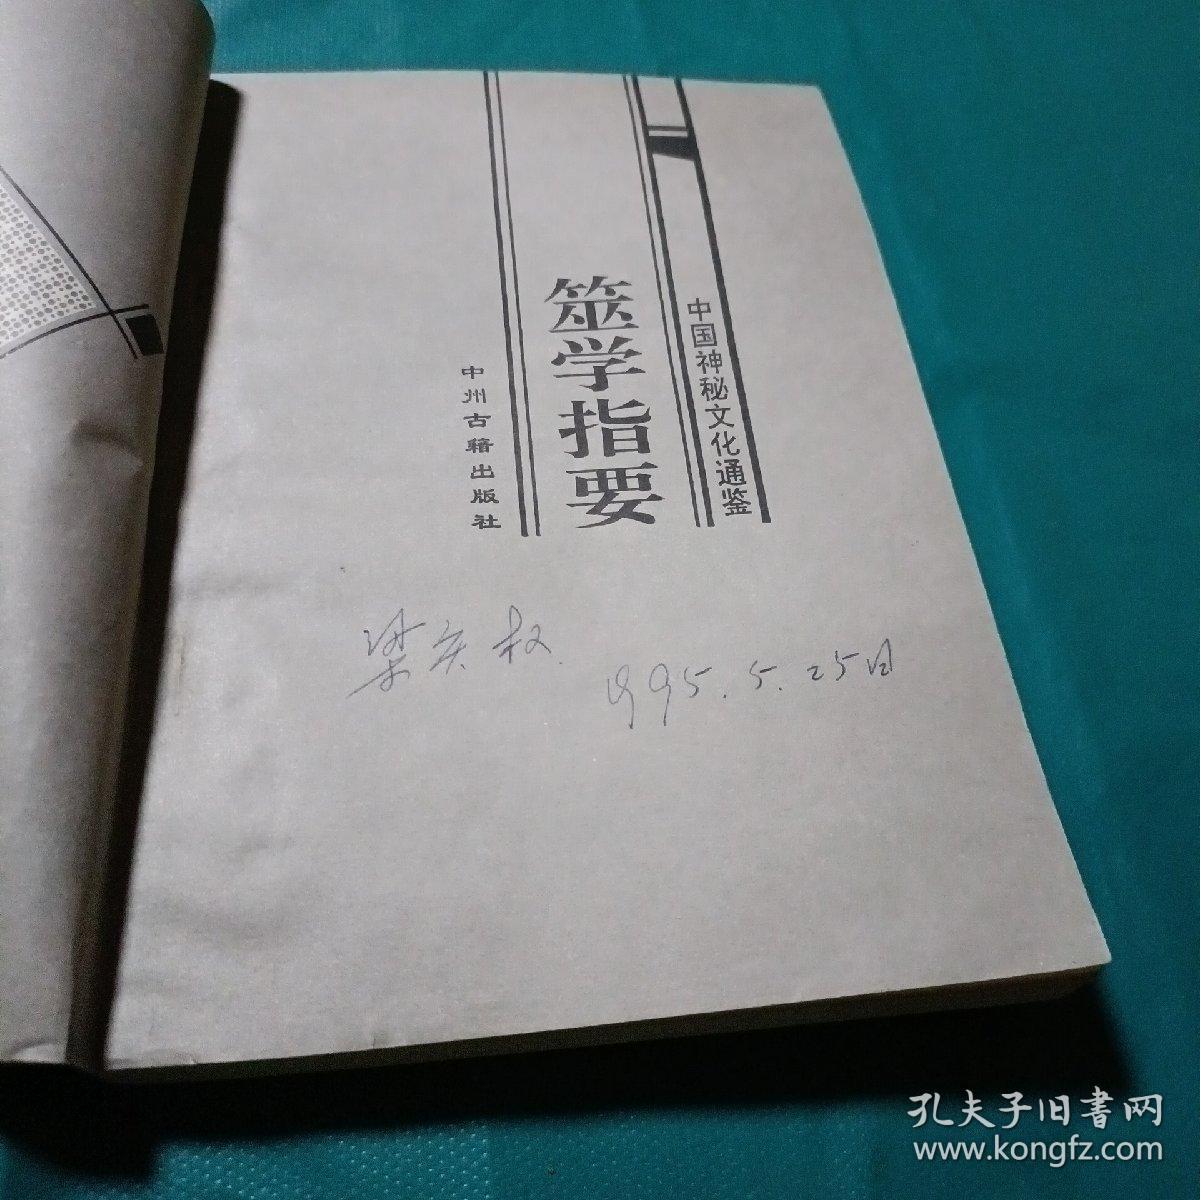 中国神秘文化通鉴
筮学指要
中州古籍出版社
梁庆权
1995.5.25日
孔夫子旧書网
www.kongfz.com